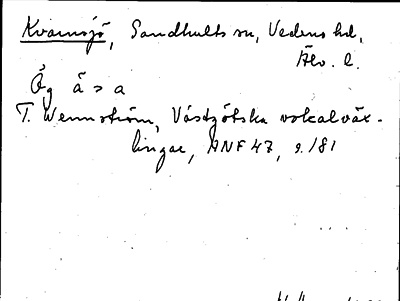 Kvarnsjö, Sandhults sn, Vedens hd,
Älv. l.
Ög ä > a
T. Wennström, Västgötska vokalväx-
lingar, ANF 47, s. 181